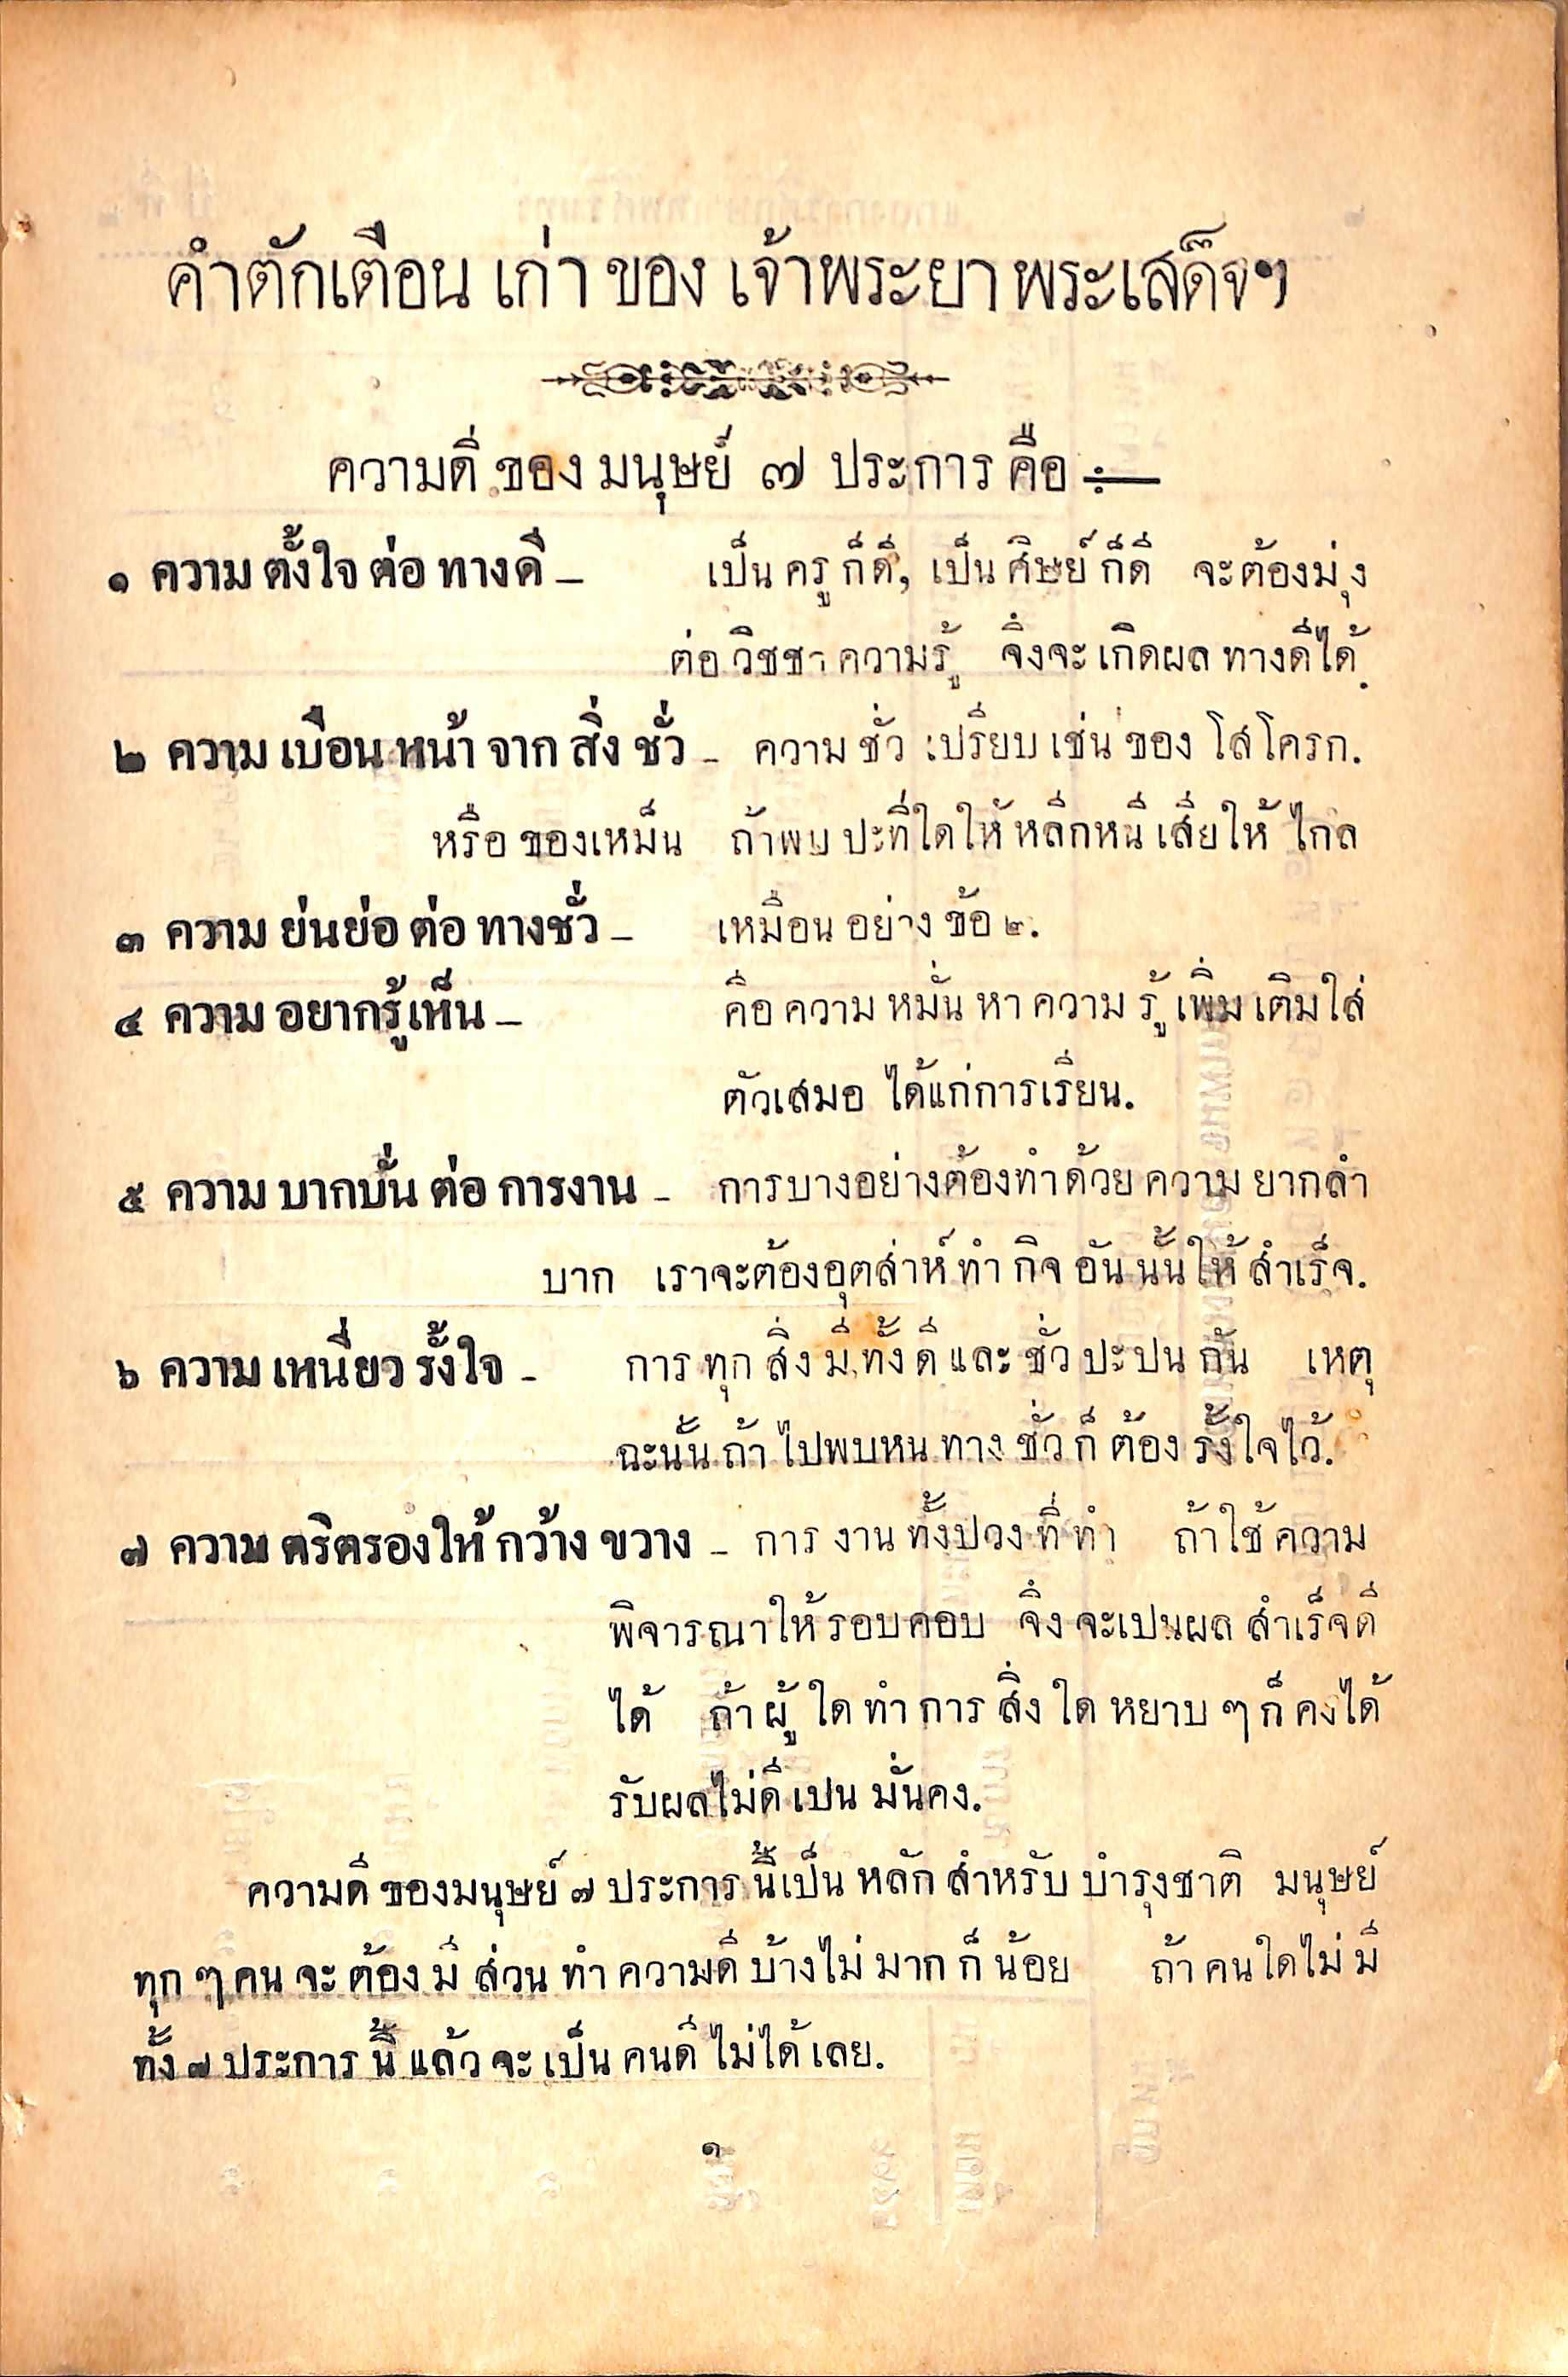 คำตักเตือน เก่า ของ เจ้าพระยา พระเสด็จฯ
ความดี ของ มนุษย์ ๗ ประการ คือ ÷—
๑ ความ ตั้งใจ ต่อ ทางดี – เป็น ครู ก็ดี, เป็น ศิษย์ ก็ดี จะต้องมุ่ง
ต่อ วิชชา ความรู้ จึงจะ เกิดผล ทางดีได้.
๒ ความ เบือน หน้า จาก สิ่ง ชั่ว – ความ ชั่ว เปรียบ เช่น ของ โสโครก.
หรือ ของเหม็น ถ้าพบ ปะที่ใดให้ หลีกหนี เสียให้ ไกล
๓ ความ ย่นย่อ ต่อ ทางชั่ว – เหมือน อย่าง ข้อ ๒.
๔ ความ อยากรู้เห็น – คือ ความ หมั่น หา ความ รู้ เพิ่ม เติมใส่
ตัวเสมอ ได้แก่การเรียน.
๕ ความ บากบั่น ต่อ การงาน – การบางอย่างต้องทำด้วย ความ ยากลำ
บาก เราจะต้องอุตส่าห์ ทำ กิจ อัน นั้นให้ สำเร็จ.
๖ ความ เหนี่ยว รั้งใจ – การ ทุก สิ่ง มีทั้ง ดี และ ชั่ว ปะปน กัน เหตุ
ฉะนั้น ถ้า ไปพบหน ทาง ชั่ว ก็ ต้อง รั้งใจไว้.
๗ ความ ตริตรองให้ กว้าง ขวาง – การ งาน ทั้งปวง ที่ ทำ ถ้าใช้ ความ
พิจารณาให้ รอบคอบ จึง จะเปนผล สำเร็จดี
ได้ ถ้า ผู้ ใด ทำ การ สิ่ง ใด หยาบ ๆ ก็ คงได้
รับผลไม่ดี เปน มั่นคง.
ความดี ของมนุษย์ ๗ ประการ นี้เป็น หลัก สำหรับ บำรุงชาติ มนุษย์
ทุก ๆ คน จะ ต้อง มี ส่วน ทำ ความดี บ้างไม่ มาก ก็ น้อย ถ้า คนใดไม่ มี
ทั้ง ๗ ประการ นี้ แล้ว จะ เป็น คนดี ไม่ได้ เลย.
๑